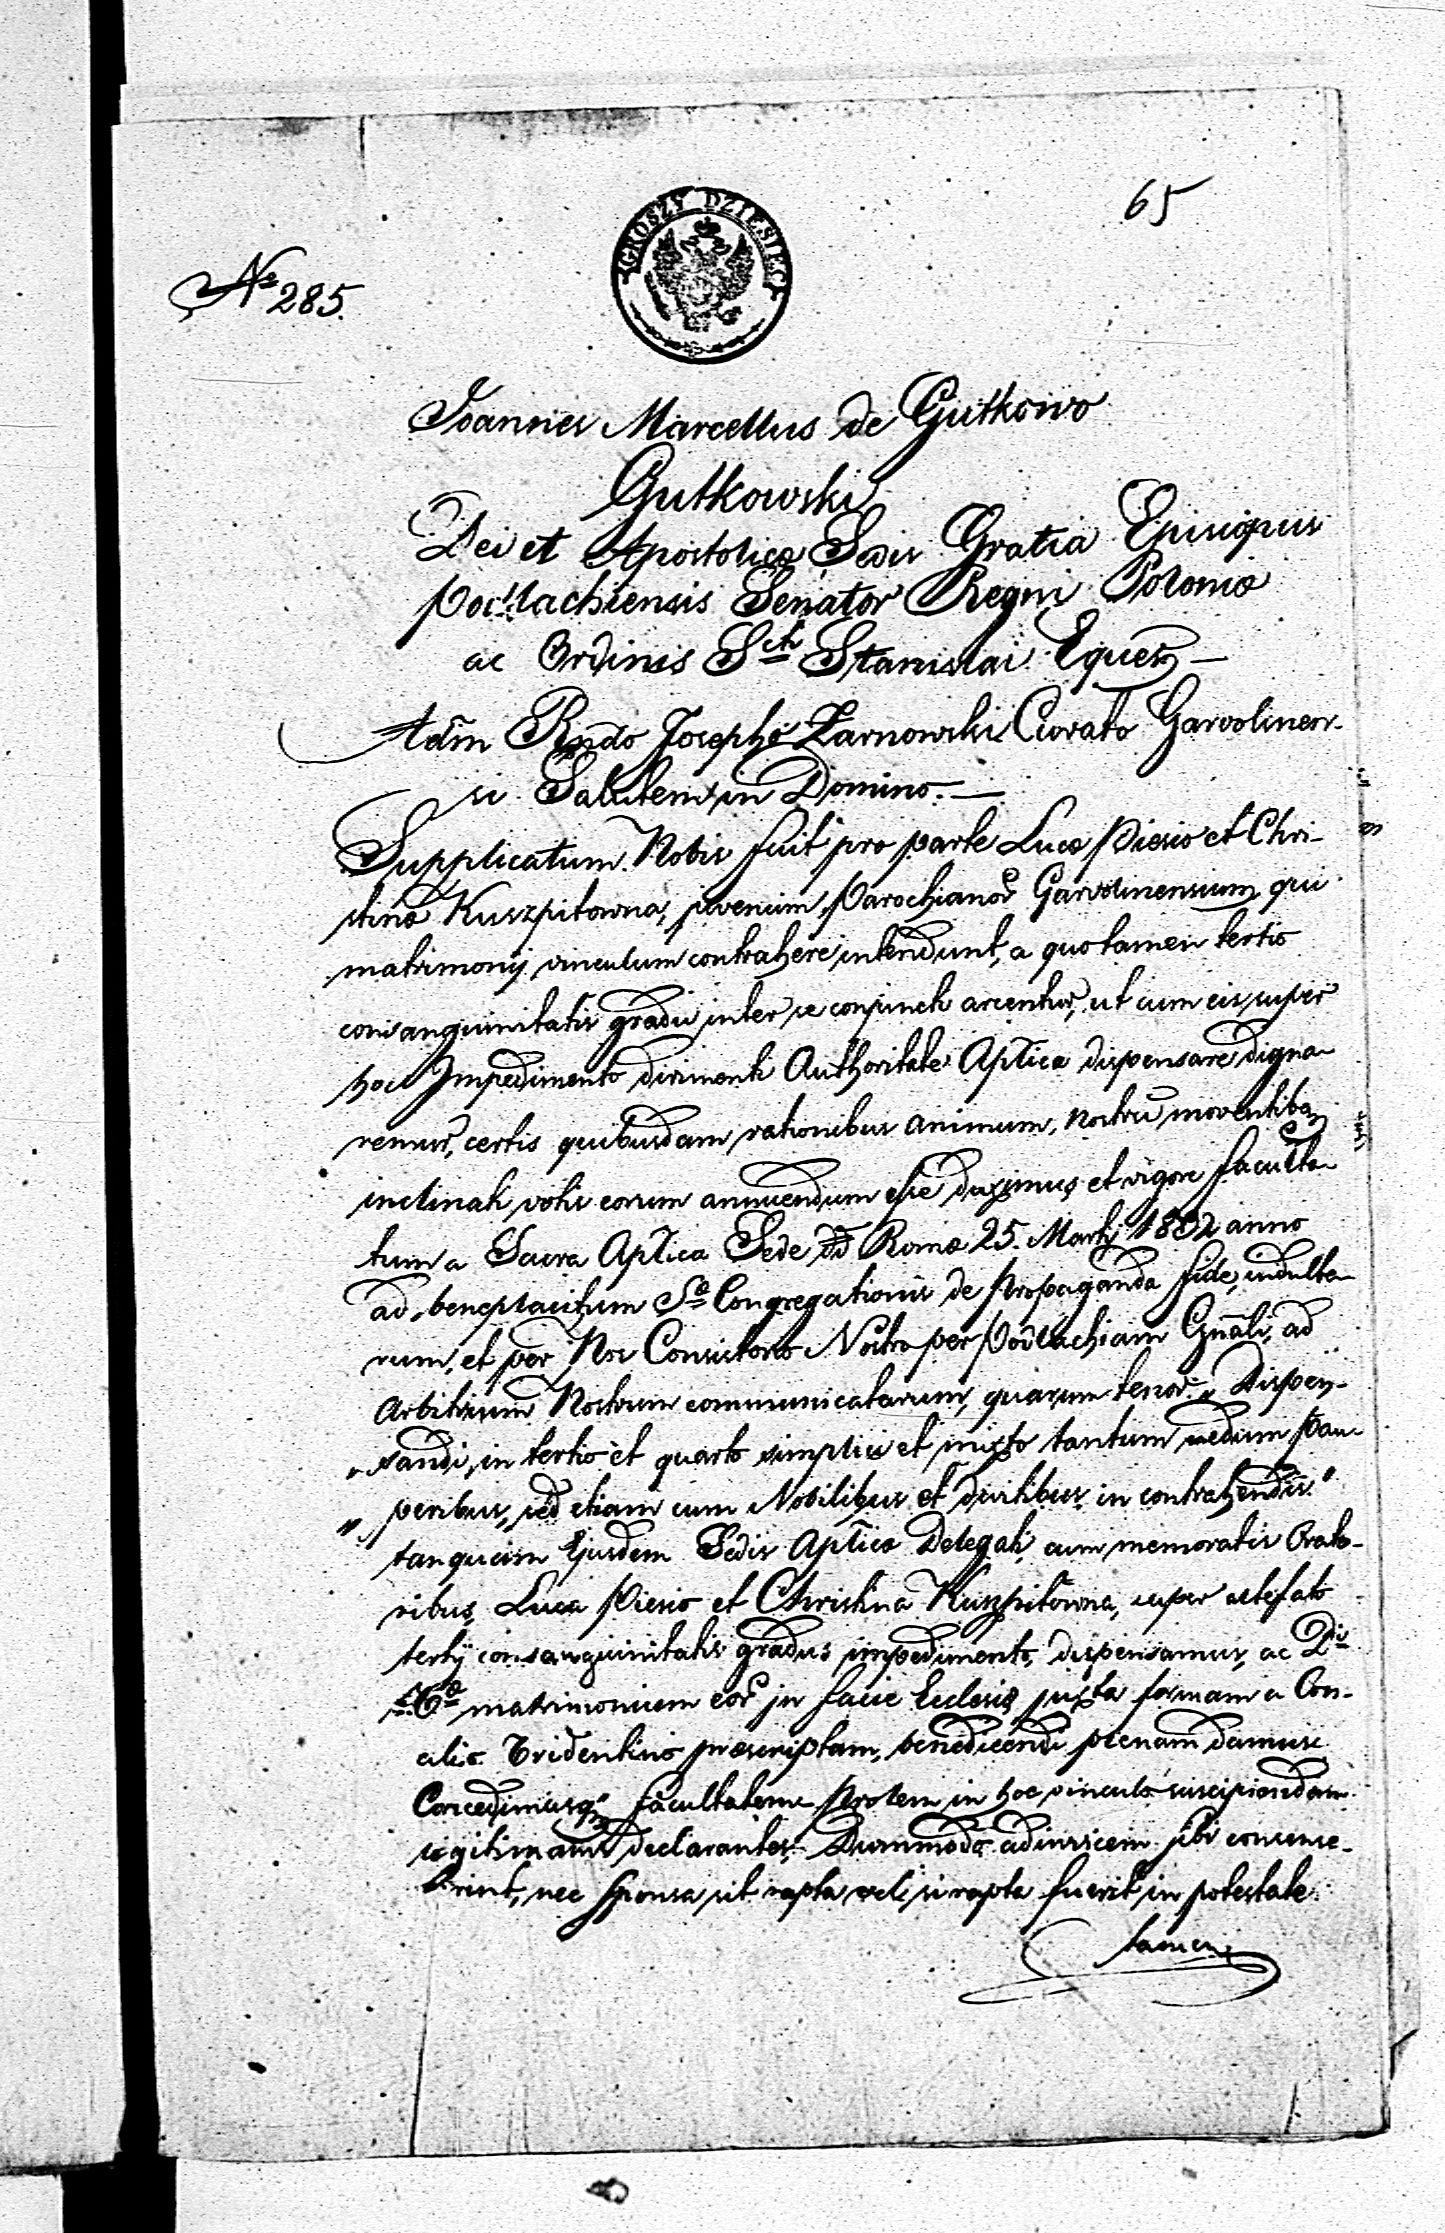 65
GROSZY DZIESIĘĆ
No 285.
Joannes Marcellus de Gutkowo
Gutkowski
Dei et Apostolicæ Sedis Gratia Episcopus
Podlachiensis Senator Regni Poloniæ
ac Ordinis Scti Stanislai Eques —
Adm Rndo Josepho Żarnowski Curato Garvolinen-
si Salutem in Domino. —
Supplicatum Nobis fuit pro parte Lucæ Piesio et Chri-
stinæ Kuszpitowna, juvenum, Parochianor Garvolinensium qui
matrimonij vinculum contrahere intendunt, a quo tamen tertio
consanguinitatis gradu inter se conjuncti arcentur, ut cum eis super
hoc Impedimento dirimenti Authoritate Aptica dispensare digna-
remur, certis quibusdam rationibus animum nostrū moventibq
inclinati votis eorum annuendum esse duximus et vigore faculta-
tum a Sacra Aptica Sede dd Romæ 25. Martij 1832 anno
ad beneplacitum Sæ Congregationis de Propaganda fide, indulta-
rum, et per Nos Consistorio Nostro per Podlachiam Gnāli, ad
Arbitrium Nostrum communicatarum, quarum tenor „ Dispen-
„ sandi, in tertio et quarto simplici et mixto tantum nedum pau-
„ peribus, sed etiam cum Nobilibus et divitibus in contrahendis"
tanquam Ejusdem Sedis Apticæ Delegati, cum memoratis Orato-
ribus, Luca Piesio et Christina Kuszpitowna, super
tertij consanguinitatis gradus impedimento, dispensamus, ac
matrimonium eor in facie Ecclesiæ juxta formam a Con-
cilio Tridentino præscriptam, benedicendi plenam damus
Concedimusq facultatem Prolem in hoc vinculo suscipiendam
legitimam declarantes. Dummodo adinvicem sibi consense-
rint, nec Sponsa sit rapta vel si rapta fuerit in potestate
tamen